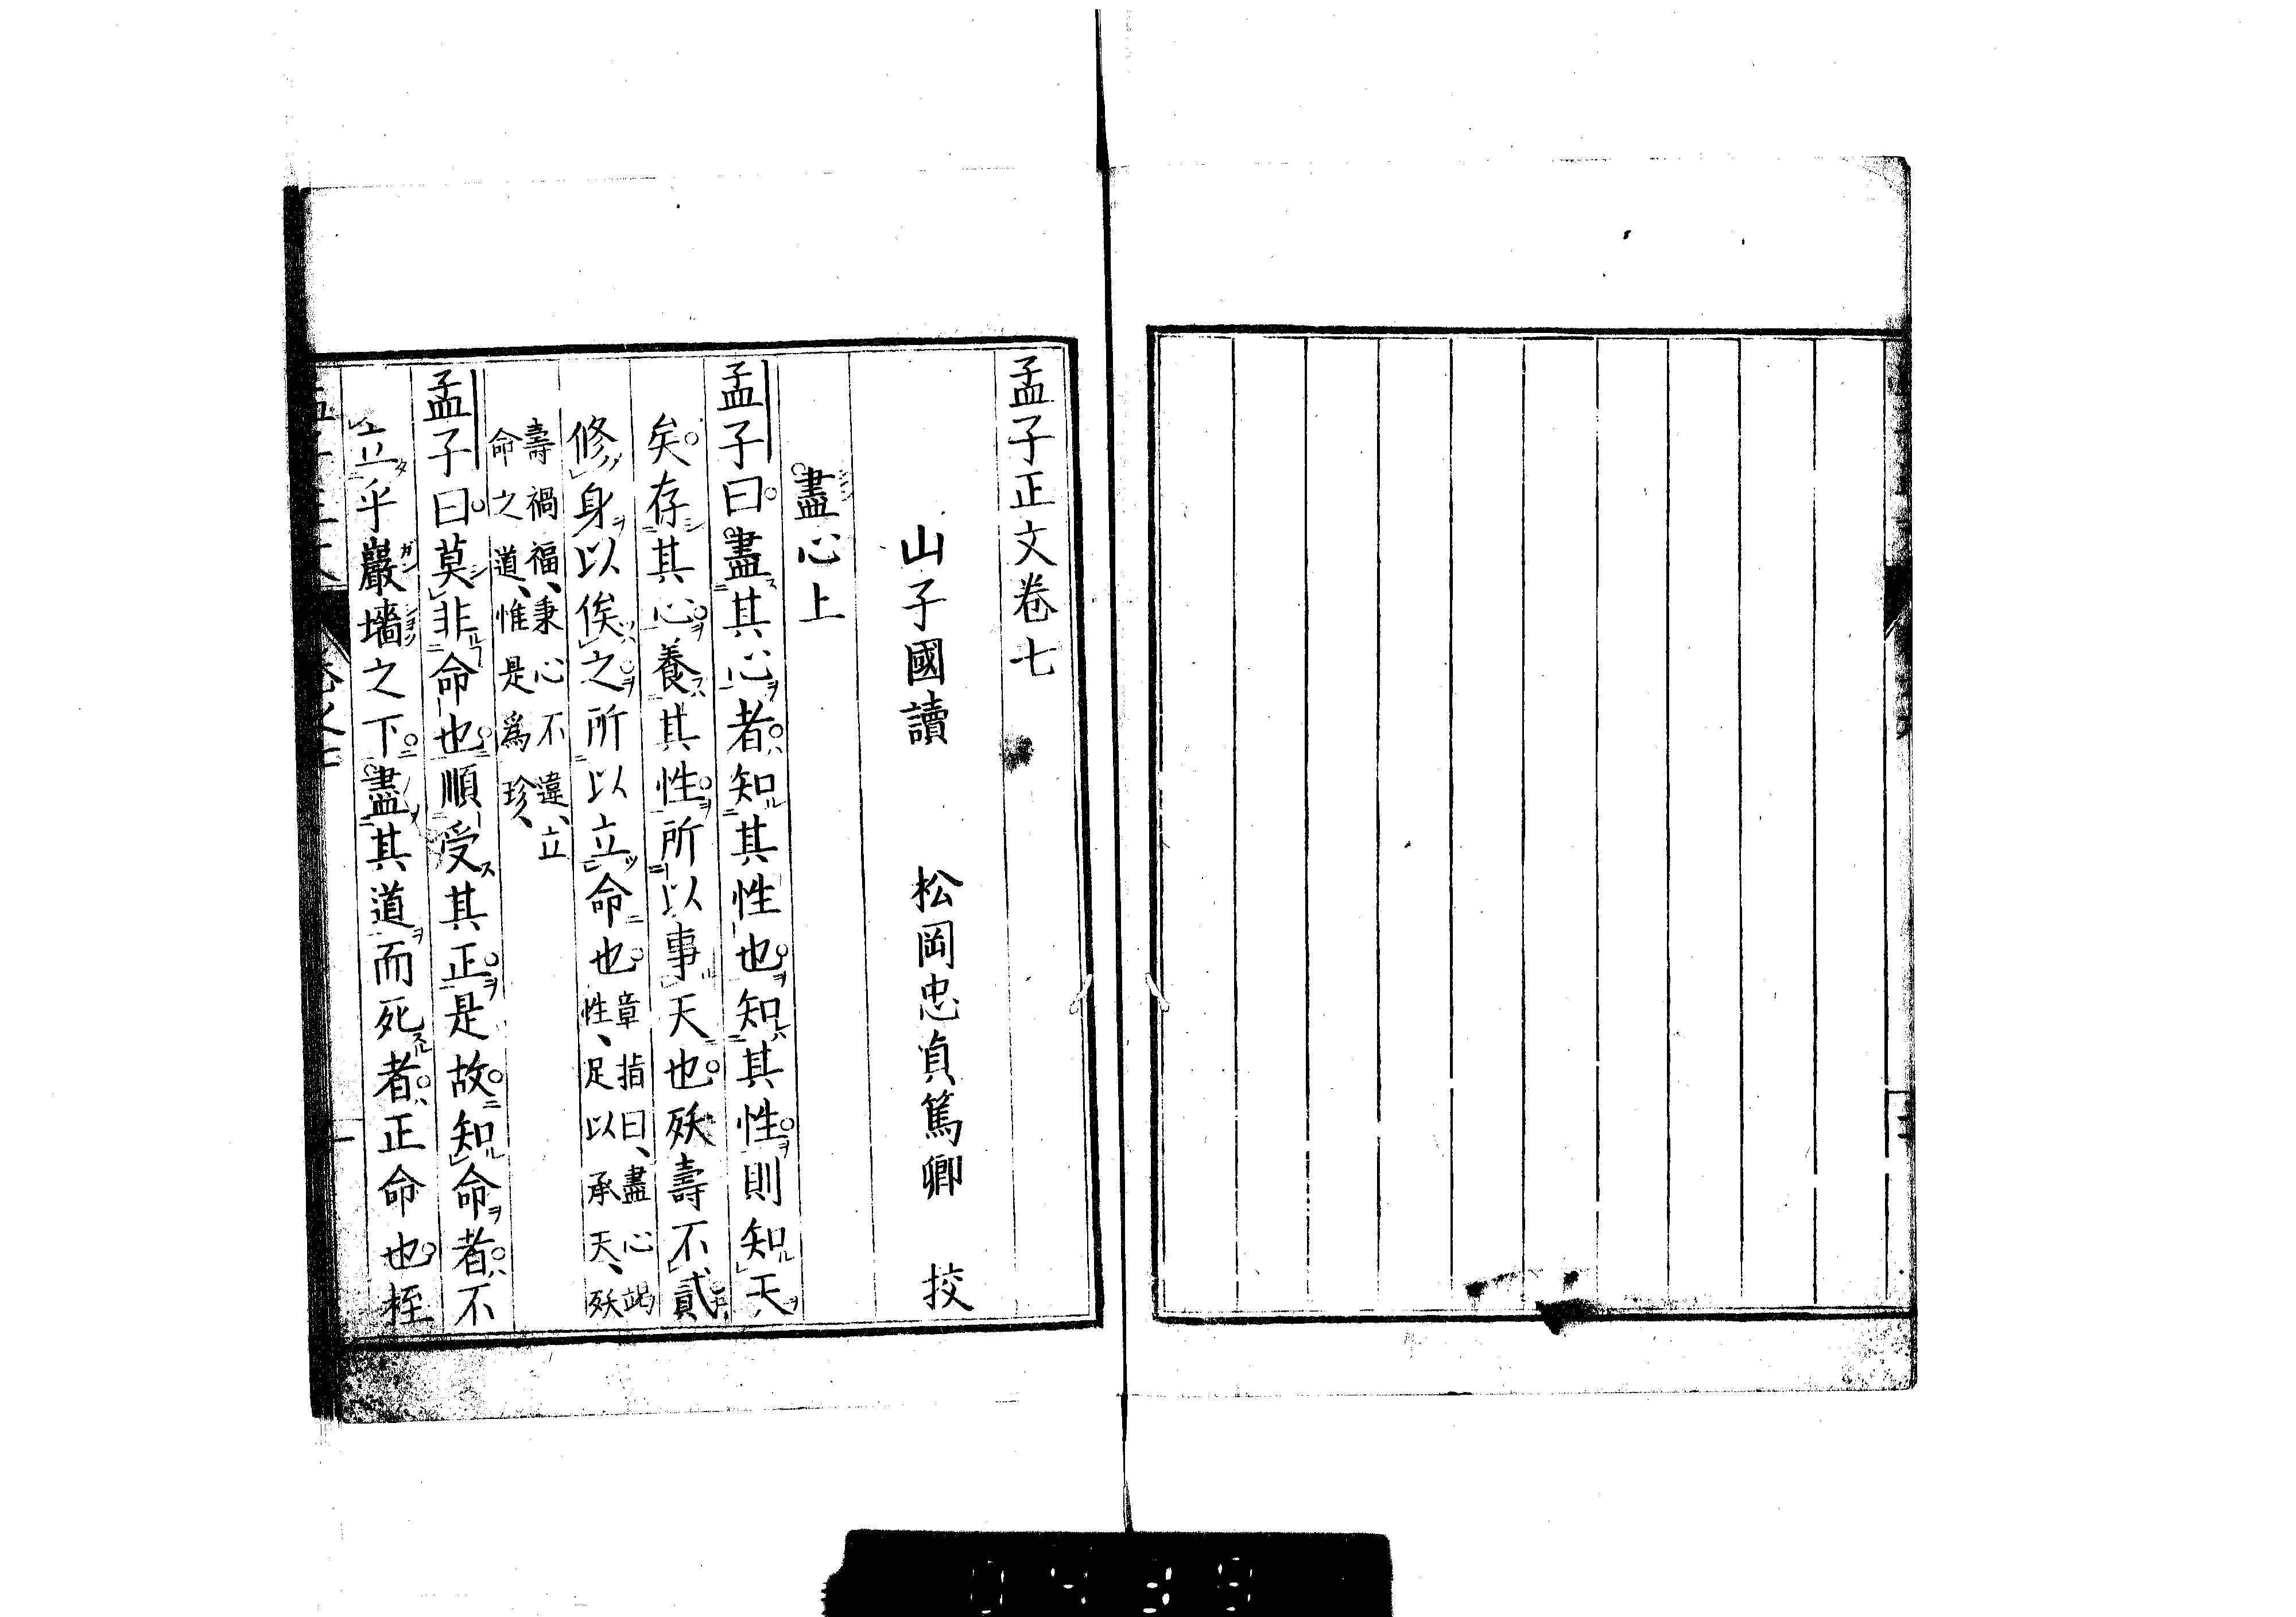 孟子正文卷七
山子國讀　松岡忠貞篤卿　挍
盡心上
孟子曰盡其心者知其性也知其性則知天
矣存其心養其性所以事天也殀壽不貳
修身以俟之所以立命也
章指曰、盡心竭
性、足以承天、殀
壽禍福、秉心不違、立
命之道、惟是爲珍、
孟子曰莫非命也順受其正是故知命者不
立乎巖墻之下盡其道而死者正命也桎